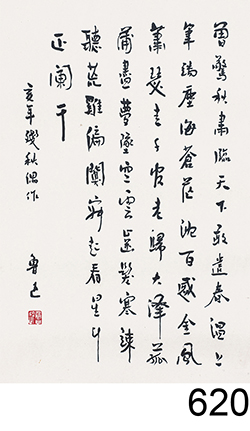 曾驚秋肅臨天下敢遣春溫上
筆端塵海蒼茫沈百感金風
蕭瑟走千官老歸大澤菰
蒲盡夢墜空雲齒髮寒竦
聽荒雞偏闃寂起看星斗
正闌干
亥年殘秋偶作
魯迅
620